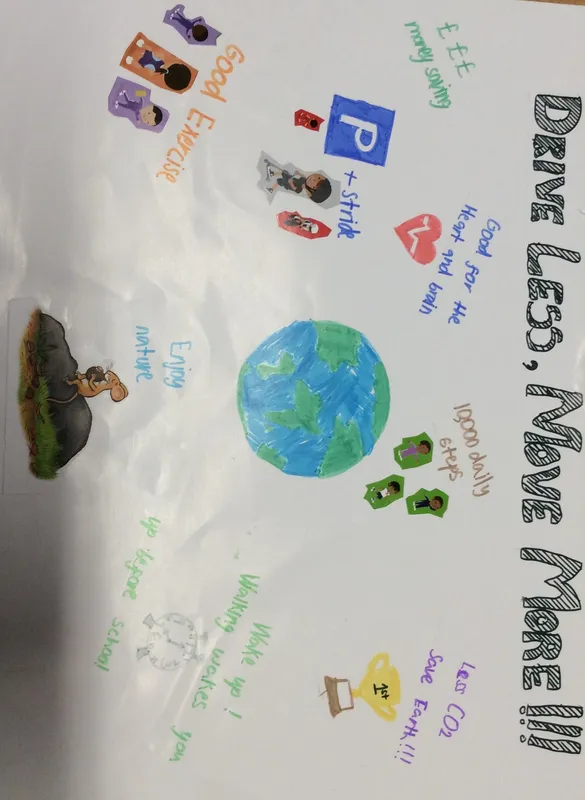 DRIVE LESS, MOVE MORE!!!
£££
money saving
Good for the
Heart and brain
10,000 daily
steps
Less CO2
Save Earth!!!
1st
P
+ Stride
Good Exercise
Enjoy
nature
Wake up!
Walking wakes you
up before school